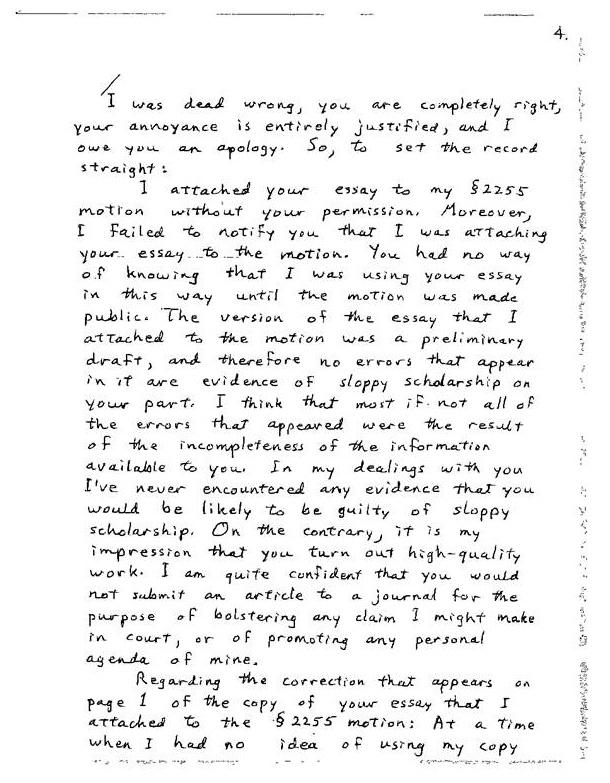 4.
I was dead wrong, you are completely right,
your annoyance is entirely justified, and I
owe you an apology. So, to set the record
straight:
I attached your essay to my §2255
motion without your permission. Moreover,
I failed to notify you that I was attaching
your essay to the motion. You had no way
of knowing that I was using your essay
in this way until the motion was made
public. The version of the essay that I
attached to the motion was a preliminary
draft, and therefore no errors that appear
in it are evidence of sloppy scholarship on
your part. I think that most if not all of
the errors that appeared were the result
of the incompleteness of the information
available to you. In my dealings with you
I've never encountered any evidence that you
would be likely to be guilty of sloppy
scholarship. On the contrary, it is my
impression that you turn out high-quality
work. I am quite confident that you would
not submit an article to a journal for the
purpose of bolstering any claim I might make
in court, or of promoting any personal
agenda of mine.
Regarding the correction that appears on
page 1 of the copy of your essay that I
attached to the §2255 motion: At a time
when I had no idea of using my copy